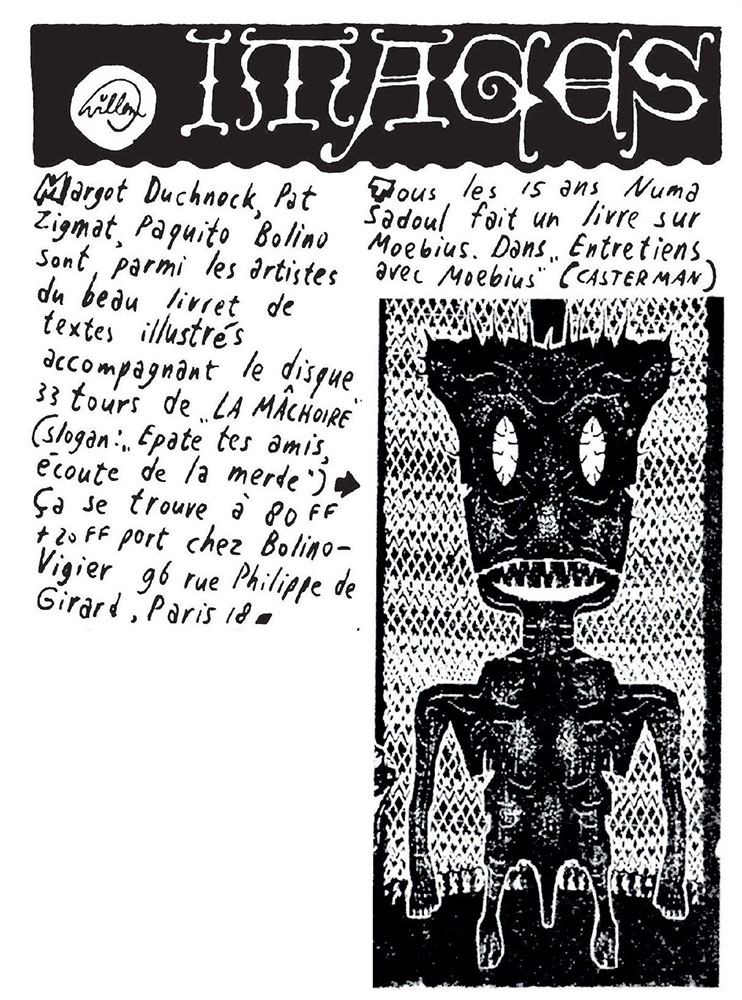 Willem
IMAGES
Margot Duchnock, Pat
Zigmat, Paquito Bolino
sont parmi les artistes
du beau livret de
textes illustrés
accompagnant le disque
33 tours de „LA MÂCHOIRE"
(slogan: „Epate tes amis,
écoute de la merde")
Ça se trouve à 80 FF
+20 FF port chez Bolino-
Vigier 96 rue Philippe de
Girard, Paris 18
Tous les 15 ans Numa
Sadoul fait un livre sur
Moebius. Dans „Entretiens
avec Moebius" (CASTERMAN)